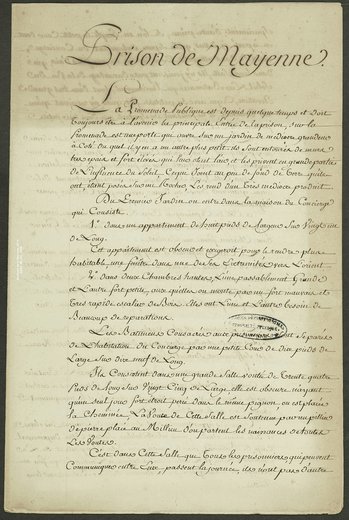 Prison de Mayenne.
La Promenade Publique est depuis quelque temps et doit
toujours être à l'avenir la principale Entrée de la prison, sur la
promenade est une porte qui ouvre sur un jardin de médiocre grandeur
à côté duquel il y en a un autre plus petit. ils sont entourés de murs
très épais et fort élevés qui leur ôtent l'air et les privent en grande partie
de l'influence du soleil. Ce qui joint au peu de fond de terre qu'ils
ont, étant posés sur un Rocher Les rend d'un Très médiocre produit.
Du Premier Jardin on entre dans la maison du Concierge
qui Consiste
1.° dans un appartement de pieds de Largeur sur Vingt un
de Long.
Cet appartement est obscur et exigeroit pour le rendre plus
habitable une fenêtre dans une de ses Extrémités vers Lorient
2.° dans Deux Chambres hautes L'une passablement Grande
et L'autre fort petite, dans lesquelles on monte par un fort mauvais et
très rapide escalier de Bois. Elles ont L'une et L'autre besoin de
Beaucoup de réparations.
Les Batimens Consacrés aux sont séparés
de L'habitation du Concierge par une petite Cour de dix pieds de
Large sur dix neuf de Long.
Ils Consistent dans une grande Salle voutée de Trente quatre
Pieds de Long sur Vingt Cinq de Large, elle est obscure n'ayant
qu'un seul jour fort étroit percé dans le même pignon où est placée
la Cheminée. La Voute de Cette Salle est soutenue par un pillier
de pierre placé au Milieu d'où partent les naissances de toutes
Les Voutes.
C'est dans Cette Salle que Tous les prisonniers qui peuvent
Communiquer entre Eux, passent la journée, ils n'ont pas d'autre